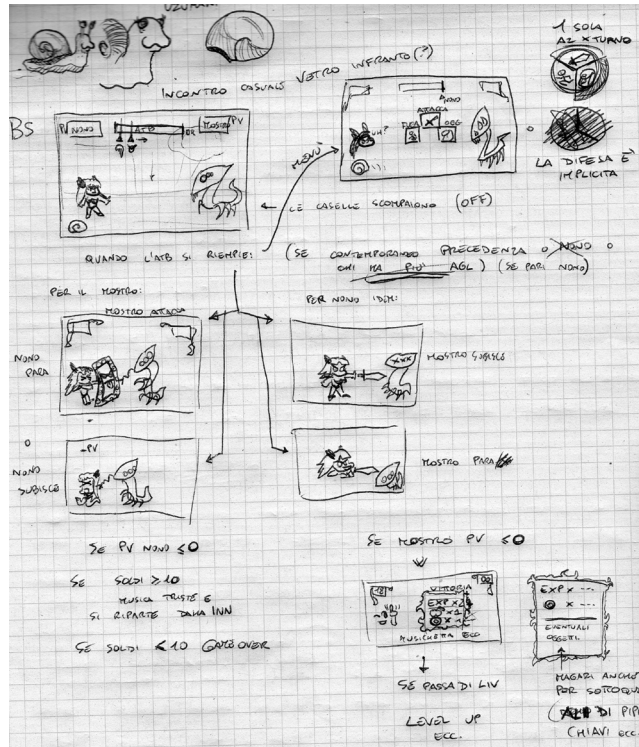 1 SOLA
AZ X TURNO
INCONTRO CASUALE VETRO INFRANTO (?)
BS
PV NONO
ATB
OR
MOSTRO PV
MENÙ
NONO
ATTACCA
FUGA
OGG
UH?
LA DIFESA È
IMPLICITA
LE CASELLE SCOMPAIONO (OFF)
QUANDO L'ATB SI RIEMPIE:
(SE CONTEMPORANEO PRECEDENZA O NONO O
CHI HA PIÙ AGL) (SE PARI NONO)
PER IL MOSTRO:
PER NONO IDEM:
MOSTRO ATTACCA
NONO
PARA
MOSTRO SUBISCE
XXX
O
NONO
SUBISCE
-PV
MOSTRO PARA
SE PV NONO ≤0
SE SOLDI ≥10
MUSICA TRISTE E
SI RIPARTE DALLA INN
SE SOLDI <10 GAMEOVER
SE MOSTRO PV ≤0
VITTORIA
EXP X
MUSICHETTA ECC
SE PASSA DI LIV
LEVEL UP
ECC.
EXP X ---
X ---
EVENTUALI
OGGETTI
MAGARI ANCHE
PER SOTTOQU
DI PIP
CHIAVI ECC